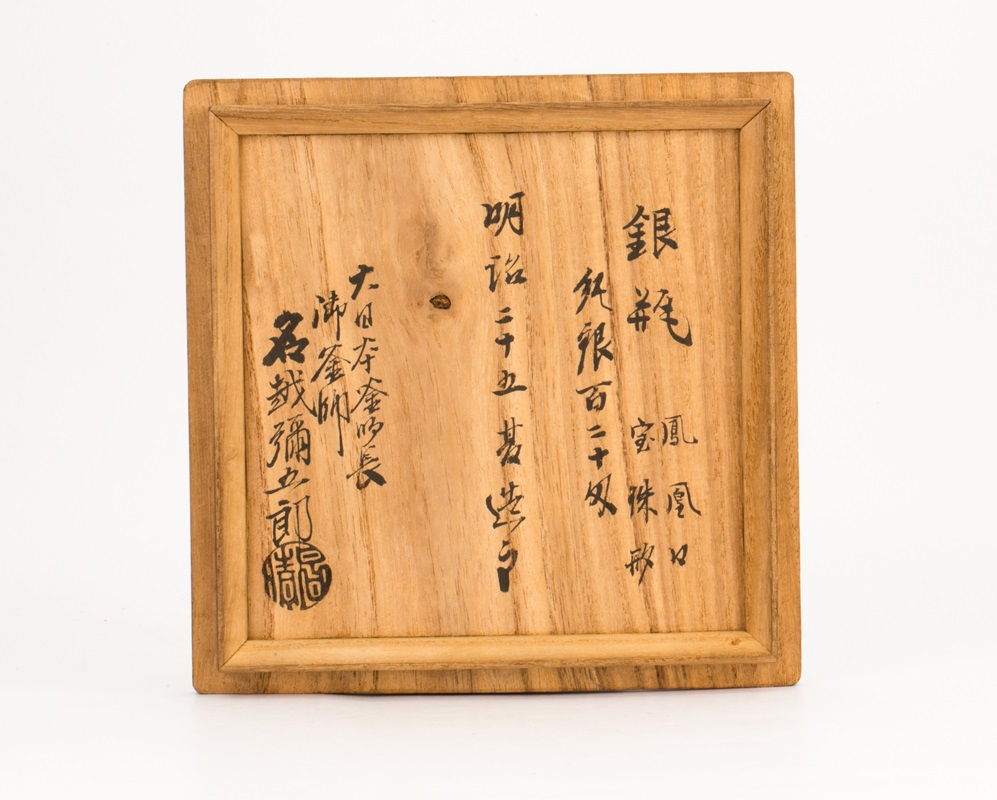 銀瓶
鳳凰口
宝珠形
純銀百二十匁
明治二十五 造
大日本釜師長
御釜師
名越彌五郎